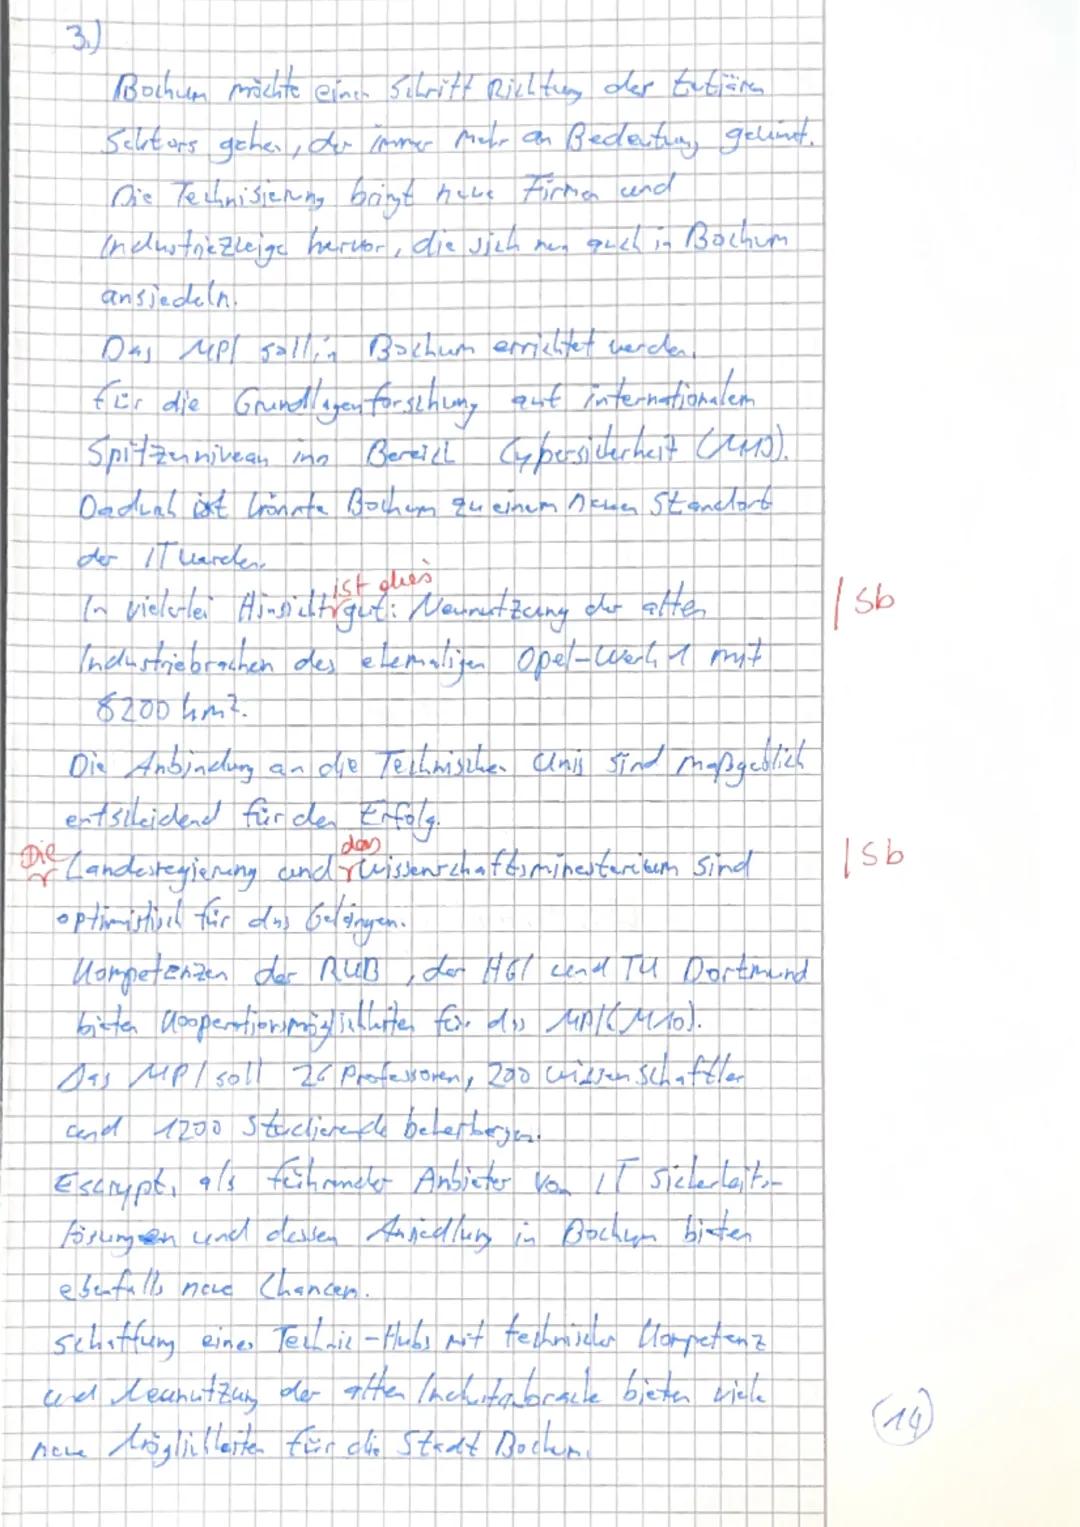 3.)
Bochum möchte einen Schritt Richtung des tertiären
Sektors gehen, der immer mehr an Bedeutung gewinnt.
Die Technisierung bringt neue Firmen und
Industriezweige hervor, die sich nun auch in Bochum
ansiedeln.
Das MPI soll in Bochum errichtet werden.
für die Grundlagenforschung auf internationalem
Spitzenniveau im Bereich Cybersicherheit (M10).
Dadurch ist könnte Bochum zu einem neuen Standort
der IT werden.
ist dies
In vielerlei Hinsicht gut: Neunutzung der alten | Sb
Industriebrachen des ehemaligen Opel-Werk 1 mit
8200 km².
Die Anbindung an die Technischen Unis sind maßgeblich
entscheidend für den Erfolg.
Die das
Landesregierung und Wissenschaftsministerium sind | Sb
optimistisch für das Gelingen.
Kompetenzen der RUB, der HGI und TU Dortmund
bieten Kooperationsmöglichkeiten für das MPI (M10).
Das MPI soll 26 Professoren, 200 Wissenschaftler
und 1200 Studierende beherbergen.
Escrypt, als führender Anbieter von IT Sicherheits-
lösungen und dessen Ansiedlung in Bochum bieten
ebenfalls neue Chancen.
Schaffung eines Technic-Hubs mit technischer Kompetenz
und Neunutzung der alten bieten viele
neue Möglichkeiten für die Stadt Bochum.
(14)